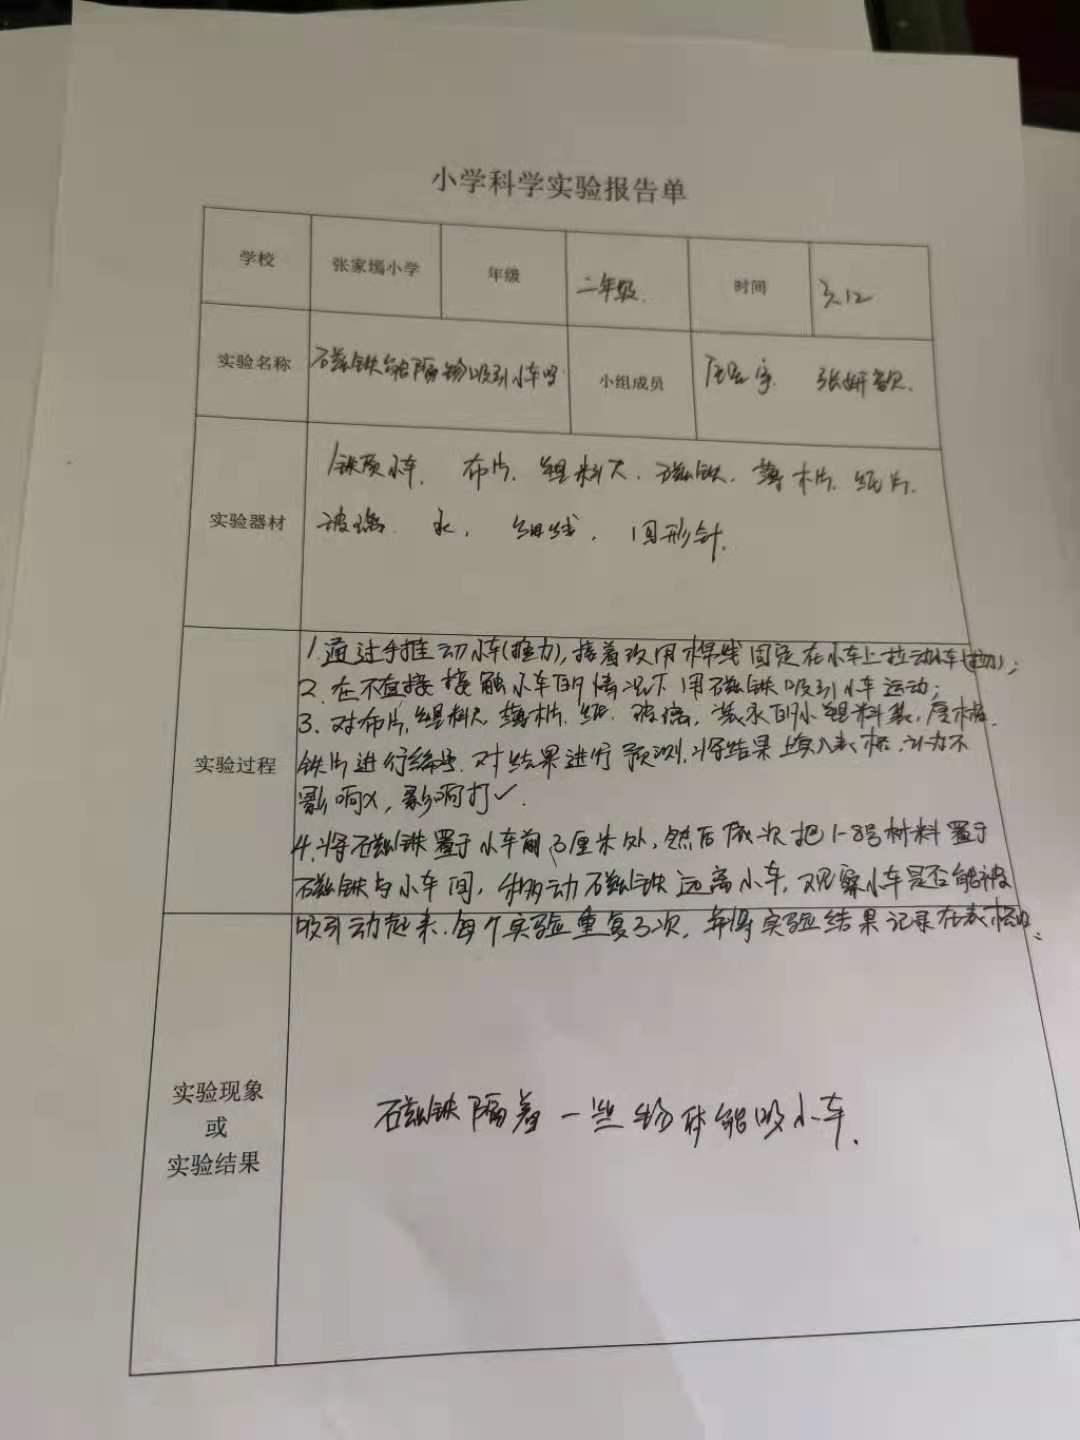 小学科学实验报告单
学校 张家塥小学 年级 二年级. 时间 3.12
实验名称 石磁铁能隔物吸引小车吗 小组成员 张妍歆.
铁质小车. 布片. 塑料尺. 磁铁. 薄木片. 纸片.
实验器材
玻璃. 水. 细线. 回形针.
1.通过手推动小车(推力),接着改用棉线固定在小车上拉动小车(拉力);
2.在不直接接触小车的情况下用石磁铁吸引小车运动;
3.对布片,塑料尺,薄木片.纸.玻璃,装水的小塑料袋,厚木板.
实验过程
铁片进行编号.对结果进行预测.将结果填入表格.认为不
影响X,影响打✓.
4.将石磁铁置于小车前3厘米处,然后依次把1-8号材料置于
石磁铁与小车间,移动石磁铁远离小车,观察小车是否能被
吸引动起来.每个实验重复3次,并将实验结果记录在表格中;
实验现象
或
实验结果
石磁铁隔着一些物体能吸小车.